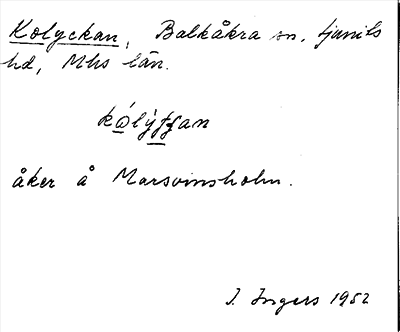 Kolyckan, Balkåkra sn, Ljunits
hd, Mhs län.
kålýkkan
åker å Marsvinsholm.
I. Ingers 1952